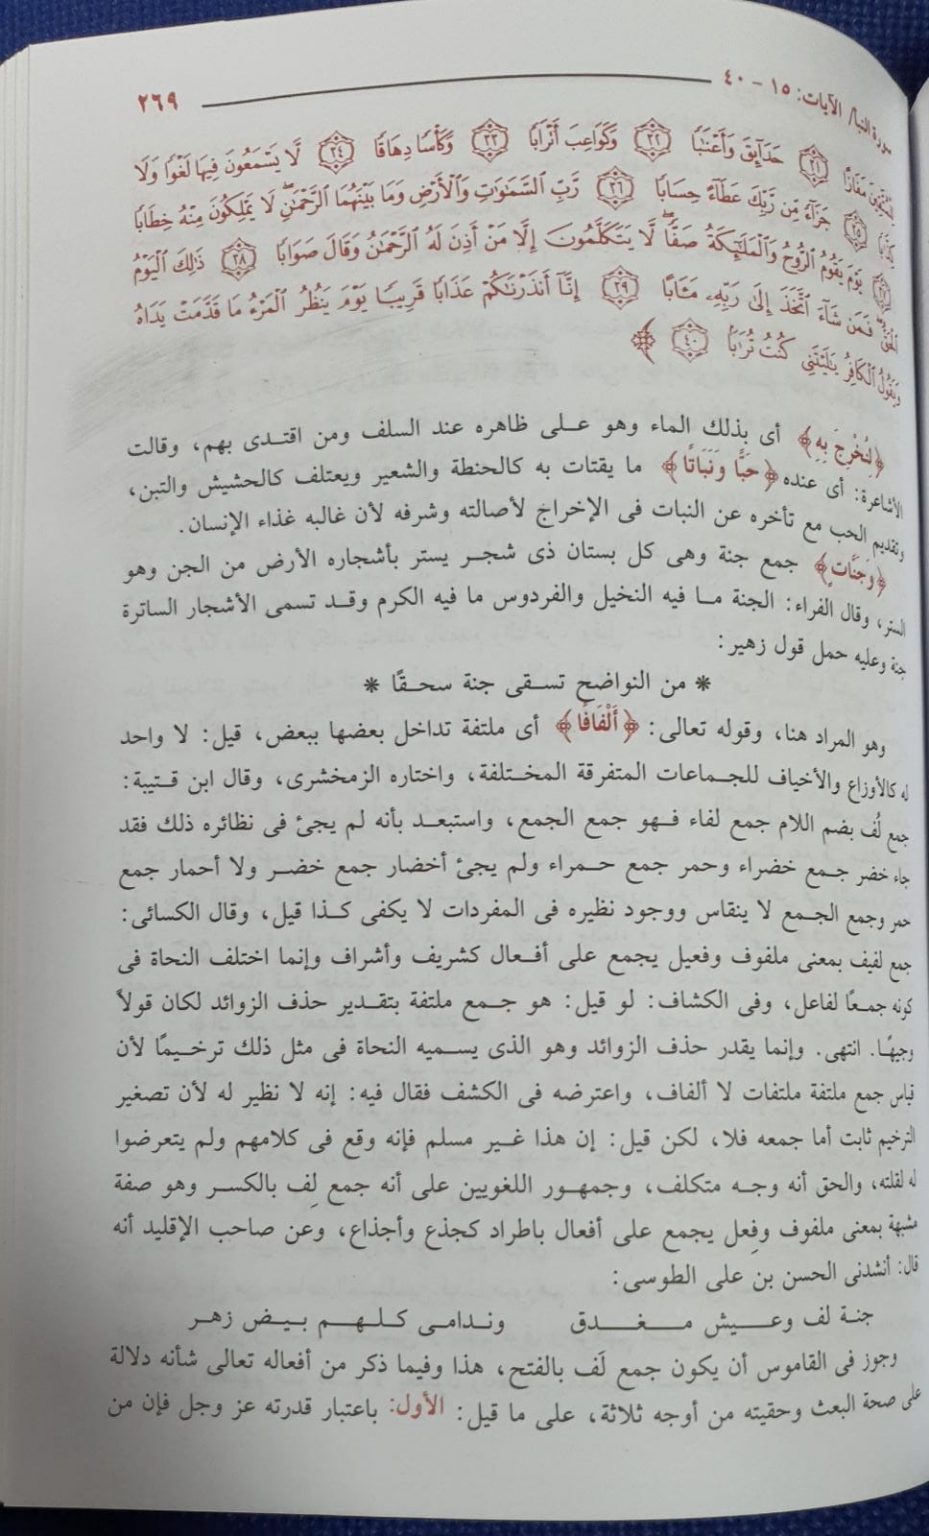 سورة النبأ/ الآيات: ١٥ - ٤٠ ٢٦٩
لِلْمُتَّقِينَ مَفَازًا ٣١ حَدَآئِقَ وَأَعْنَٰبًا ٣٢ وَكَوَاعِبَ أَتْرَابًا ٣٣ وَكَأْسًا دِهَاقًا ٣٤ لَّا يَسْمَعُونَ فِيهَا لَغْوًا وَلَا
كِذَّٰبًا ٣٥ جَزَآءً مِّن رَّبِّكَ عَطَآءً حِسَابًا ٣٦ رَّبِّ ٱلسَّمَٰوَٰتِ وَٱلْأَرْضِ وَمَا بَيْنَهُمَا ٱلرَّحْمَٰنِ لَا يَمْلِكُونَ مِنْهُ خِطَابًا
٣٧ يَوْمَ يَقُومُ ٱلرُّوحُ وَٱلْمَلَٰٓئِكَةُ صَفًّا لَّا يَتَكَلَّمُونَ إِلَّا مَنْ أَذِنَ لَهُ ٱلرَّحْمَٰنُ وَقَالَ صَوَابًا ٣٨ ذَٰلِكَ ٱلْيَوْمُ
ٱلْحَقُّ فَمَن شَآءَ ٱتَّخَذَ إِلَىٰ رَبِّهِۦ مَـَٔابًا ٣٩ إِنَّآ أَنذَرْنَٰكُمْ عَذَابًا قَرِيبًا يَوْمَ يَنظُرُ ٱلْمَرْءُ مَا قَدَّمَتْ يَدَاهُ
وَيَقُولُ ٱلْكَافِرُ يَٰلَيْتَنِي كُنتُ تُرَٰبًا ٤٠ ﴾
﴿لِنُخْرِجَ بِهِ﴾ أى بذلك الماء وهو على ظاهره عند السلف ومن اقتدى بهم، وقالت
الأشاعرة: أى عنده ﴿حَبًّا وَنَبَاتًا﴾ ما يقتات به كالحنطة والشعير ويعتلف كالحشيش والتبن،
وتقديم الحب مع تأخره عن النبات فى الإخراج لأصالته وشرفه لأن غالبه غذاء الإنسان.
﴿وَجَنَّاتٍ﴾ جمع جنة وهى كل بستان ذى شجر يستر بأشجاره الأرض من الجن وهو
الستر، وقال الفراء: الجنة ما فيه النخيل والفردوس ما فيه الكرم وقد تسمى الأشجار الساترة
جنة وعليه حمل قول زهير:
* من النواضح تسقى جنة سحقًا *
وهو المراد هنا، وقوله تعالى: ﴿أَلْفَافًا﴾ أى ملتفة تداخل بعضها ببعض، قيل: لا واحد
له كالأوزاع والأخياف للجماعات المتفرقة المختلفة، واختاره الزمخشرى، وقال ابن قتيبة:
جمع لُف بضم اللام جمع لفاء فهو جمع الجمع، واستبعد بأنه لم يجئ فى نظائره ذلك فقد
جاء خضر جمع خضراء وحمر جمع حمراء ولم يجئ أخضار جمع خضر ولا أحمار جمع
حمر وجمع الجمع لا ينقاس ووجود نظيره فى المفردات لا يكفى كذا قيل، وقال الكسائى:
جمع لفيف بمعنى ملفوف وفعيل يجمع على أفعال كشريف وأشراف وإنما اختلف النحاة فى
كونه جمعًا لفاعل، وفى الكشاف: لو قيل: هو جمع ملتفة بتقدير حذف الزوائد لكان قولاً
وجيهًا. انتهى. وإنما يقدر حذف الزوائد وهو الذى يسميه النحاة فى مثل ذلك ترخيمًا لأن
قياس جمع ملتفة ملتفات لا ألفاف، واعترضه فى الكشف فقال فيه: إنه لا نظير له لأن تصغير
الترخيم ثابت أما جمعه فلا، لكن قيل: إن هذا غير مسلم فإنه وقع فى كلامهم ولم يتعرضوا
له لقلته، والحق أنه وجه متكلف، وجمهور اللغويين على أنه جمع لِف بالكسر وهو صفة
مشبهة بمعنى ملفوف وفِعل يجمع على أفعال باطراد كجذع وأجذاع، وعن صاحب الإقليد أنه
قال: أنشدنى الحسن بن على الطوسى:
جنة لف وعيش مغدق وندامى كلهم بيض زهر
وجوز فى القاموس أن يكون جمع لَف بالفتح، هذا وفيما ذكر من أفعاله تعالى شأنه دلالة
على صحة البعث وحقيته من أوجه ثلاثة، على ما قيل: الأول: باعتبار قدرته عز وجل فإن من